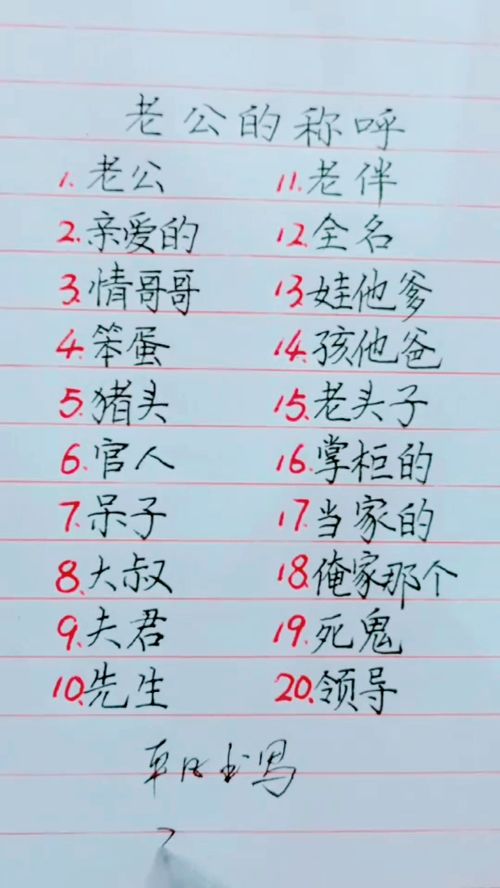 老公的称呼
1.老公
2.亲爱的
3.情哥哥
4.笨蛋
5.猪头
6.官人
7.呆子
8.大叔
9.夫君
10.先生
11.老伴
12.全名
13.娃他爹
14.孩他爸
15.老头子
16.掌柜的
17.当家的
18.俺家那个
19.死鬼
20.领导